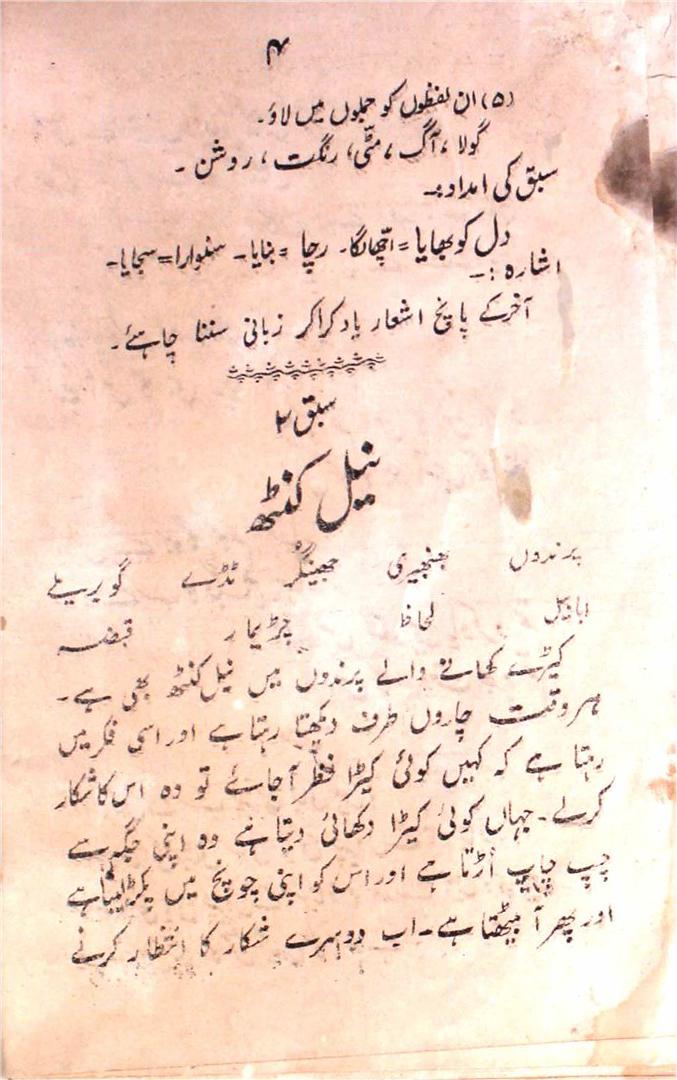 ۴
(۵) ان لفظوں کو جملوں میں لاؤ۔
گولا ، آگ ، مٹّی ، رنگت ، روشن ۔
سبق کی امداد :۔
دل کو بھایا = اچّھا لگا۔ رچا = بنایا۔ سنوارا = سجایا۔
اشارہ :۔
آخر کے پانچ اشعار یاد کرا کر زبانی سننا چاہئے۔
سبق ۲
نیل کنٹھ
پرندوں بھنبھیری جھینگر ٹڈے گوبریلے
ابابیل لحاظ چڑیمار قبضہ
کیڑے کھانے والے پرندوں میں نیل کنٹھ بھی ہے۔
ہر وقت چاروں طرف دیکھتا رہتا ہے اور اسی فکر میں
رہتا ہے کہ کہیں کوئی کیڑا نظر آجائے تو وہ اس کا شکار
کرلے۔ جہاں کوئی کیڑا دکھائی دیتا ہے وہ اپنی جگہ سے
چپ چاپ اُڑتا ہے اور اس کو اپنی چونچ میں پکڑ لیتا ہے
اور پھر آ بیٹھتا ہے۔ اب دوسرے شکار کا انتظار کرنے